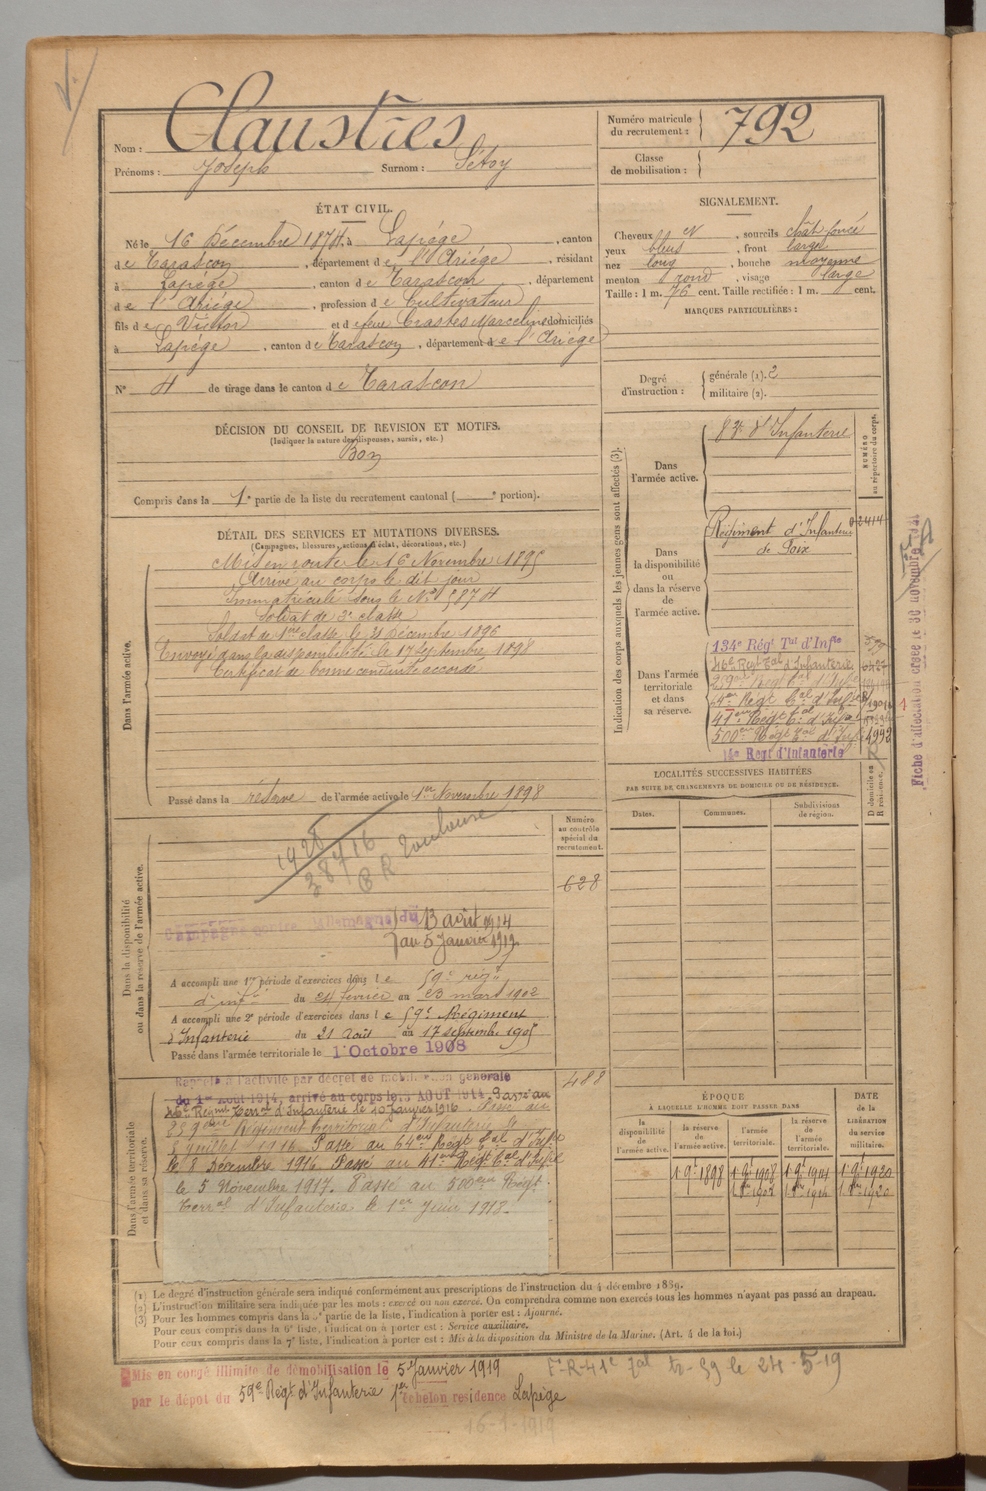 Nom : Claustres
Prénoms : Joseph Surnom : Sétoy
Numéro matricule du recrutement : 792
Classe de mobilisation :
ÉTAT CIVIL.
Né le 16 Décembre 1874, à Lapège, canton
de Tarascon, département de l'Ariége, résidant
à Lapège, canton de Tarascon, département
de l'Ariége, profession de Cultivateur
fils de Victor et de feue Crastes Marceline domiciliés
à Lapège, canton de Tarascon, département de l'Ariége
N° 4 de tirage dans le canton de Tarascon
SIGNALEMENT.
Cheveux et sourcils chât foncé
yeux bleus, front large
nez long, bouche moyenne
menton rond, visage large
Taille : 1 m. 76 cent. Taille rectifiée : 1 m. cent.
MARQUES PARTICULIÈRES :
Degré d'instruction : générale (1). 2
militaire (2).
DÉCISION DU CONSEIL DE REVISION ET MOTIFS.
(Indiquer la nature des dispenses, sursis, etc.)
Bon
Compris dans la 1e partie de la liste du recrutement cantonal ( e portion).
DÉTAIL DES SERVICES ET MUTATIONS DIVERSES.
(Campagnes, blessures, actions d'éclat, décorations, etc.)
Dans l'armée active.
Mis en route le 16 Novembre 1895
Arrivé au corps le dit jour
Immatriculé sous le No 5874
Soldat de 2e classe
Soldat de 1ère classe le 21 Décembre 1896
Envoyé dans la disponibilité le 17 Septembre 1898
Certificat de bonne conduite accordé
Passé dans la réserve de l'armée active le 1er Novembre 1898
Indication des corps auxquels les jeunes gens sont affectés (3).
NUMÉRO au répertoire du corps.
Dans l'armée active.
83e d'Infanterie
Dans la disponibilité ou dans la réserve de l'armée active.
Régiment d'Infanterie 02414
de Foix
Dans l'armée territoriale et dans sa réserve.
134e Régt Tal d'Infie
46e Regt Tal d'Infanterie 6427
259me Regt Tal d'Infie
64me Regt Tal d'Infie
41me Regt Tal d'Infie
500me Regt Tal d'Infie 4992
14e Regt d'Infanterie
Fiche d'affectation créée le 30 novembre
LOCALITÉS SUCCESSIVES HABITÉES
PAR SUITE DE CHANGEMENTS DE DOMICILE OU DE RÉSIDENCE.
Dates. Communes. Subdivisions de région. D domicile ou R résidence.
Dans la disponibilité ou dans la réserve de l'armée active.
Numéro au contrôle spécial du recrutement.
628
1928
38716
CR Toulouse
Campagne contre l'Allemagne du 13 août 1914
au 5 Janvier 1919
A accompli une 1re période d'exercices dans le 59e régt
d'infie du 24 février au 23 mars 1902
A accompli une 2e période d'exercices dans le 59e Régiment
d'Infanterie du 21 Août au 17 septembre 1905
Passé dans l'armée territoriale le 1er Octobre 1908
Dans l'armée territoriale et dans sa réserve.
488
Rappelé à l'activité par décret de mobilisation générale
du 1er Août 1914, arrivé au corps le AOUT 1914, Passé au
46e Régimt Terral d'Infanterie le 10 Janvier 1916. Passé au
259eme Régiment territorial d'Infanterie le
Juillet 1916. Passé au 64eme Regt Tal d'Infie
le 8 Décembre 1916. Passé au 41eme Regt Tal d'Infie
le 5 Novembre 1917. Passé au 500eme Régt
Terral d'Infanterie le 1er Juin 1918.
ÉPOQUE
À LAQUELLE L'HOMME DOIT PASSER DANS
la disponibilité de l'armée active. la réserve de l'armée active. l'armée territoriale. la réserve de l'armée territoriale.
DATE de la LIBÉRATION du service militaire.
1 9e 1898
(1) Le degré d'instruction générale sera indiqué conformément aux prescriptions de l'instruction du 4 décembre 1889.
(2) L'instruction militaire sera indiquée par les mots : exercé ou non exercé. On comprendra comme non exercés tous les hommes n'ayant pas passé au drapeau.
(3) Pour les hommes compris dans la 5e partie de la liste, l'indication à porter est : Ajourné.
Pour ceux compris dans la 6e liste, l'indication à porter est : Service auxiliaire.
Pour ceux compris dans la 7e liste, l'indication à porter est : Mis à la disposition du Ministre de la Marine. (Art. 4 de la loi.)
Mis en congé illimité de démobilisation le 5 Janvier 1919
par le dépot du 59e Régt d'Infanterie 1er échelon residence Lapège
16-1-1919